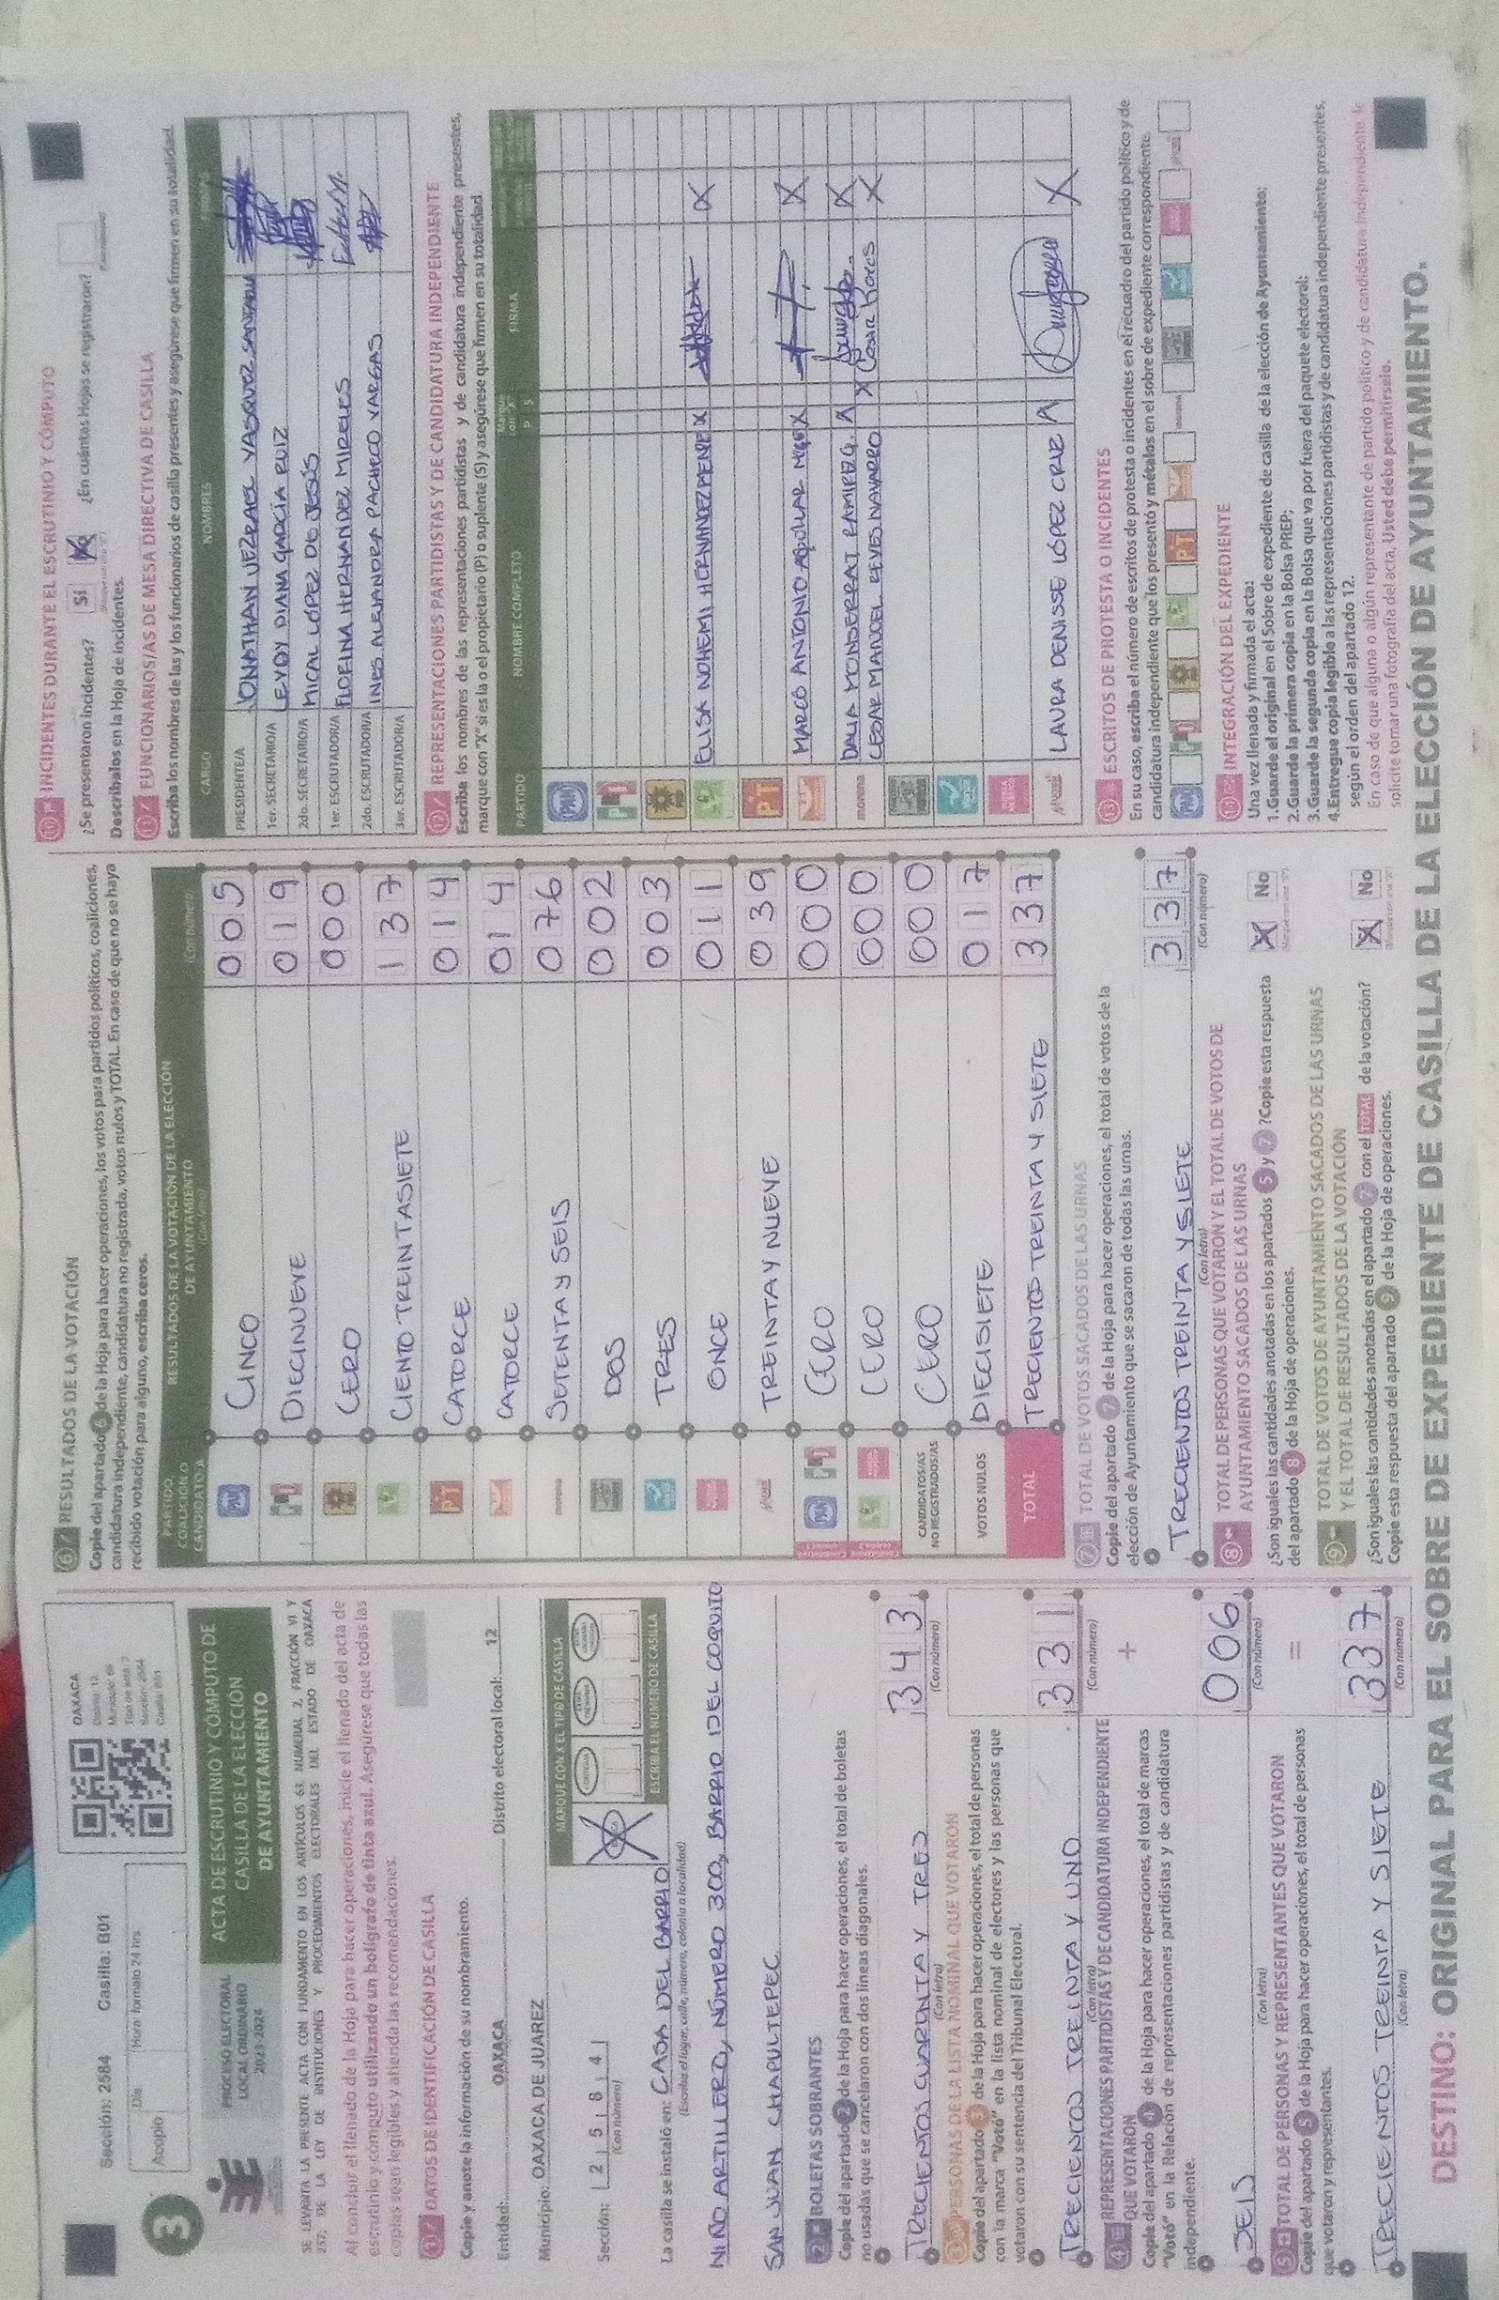 Sección: 2584 Casilla: B01
OAXACA
Distrito: 12
Sección: 2584
Casilla: B01
Acopio
Día
Hora formato 24 hrs
3
PROCESO ELECTORAL
LOCAL ORDINARIO
2023-2024
ACTA DE ESCRUTINIO Y CÓMPUTO DE
CASILLA DE LA ELECCIÓN
DE AYUNTAMIENTO
SE LEVANTA LA PRESENTE ACTA CON FUNDAMENTO EN LOS ARTÍCULOS 63, NUMERAL 2, FRACCIÓN VI Y
257; DE LA LEY DE INSTITUCIONES Y PROCEDIMIENTOS ELECTORALES DEL ESTADO DE OAXACA
Al concluir el llenado de la Hoja para hacer operaciones, inicie el llenado del acta de
escrutinio y cómputo utilizando un bolígrafo de tinta azul. Asegúrese que todas las
copias sean legibles y atienda las recomendaciones.
1 DATOS DE IDENTIFICACIÓN DE CASILLA
Copie y anote la información de su nombramiento.
Entidad: OAXACA Distrito electoral local: 12
Municipio: OAXACA DE JUAREZ
Sección: 2 5 8 4
(Con número)
MARQUE CON X EL TIPO DE CASILLA
ESCRIBA EL NÚMERO DE CASILLA
La casilla se instaló en: CASA DEL BARRIO
(Escriba el lugar, calle, número, colonia o localidad)
NIÑO ARTILLERO, NÚMERO 300, BARRIO DEL COQUITO
SAN JUAN CHAPULTEPEC
2 BOLETAS SOBRANTES
Copie del apartado 2 de la Hoja para hacer operaciones, el total de boletas
no usadas que se cancelaron con dos líneas diagonales.
TRECIENTOS CUARENTA Y TRES 343
(Con letra) (Con número)
3 PERSONAS DE LA LISTA NOMINAL QUE VOTARON
Copie del apartado 3 de la Hoja para hacer operaciones, el total de personas
con la marca "Votó" en la lista nominal de electores y las personas que
votaron con su sentencia del Tribunal Electoral.
TRECIENTOS TREINTA Y UNO 331
(Con letra) (Con número)
+
4 REPRESENTACIONES PARTIDISTAS Y DE CANDIDATURA INDEPENDIENTE
QUE VOTARON
Copie del apartado 4 de la Hoja para hacer operaciones, el total de marcas
"Votó" en la Relación de representaciones partidistas y de candidatura
independiente.
SEIS 006
(Con letra) (Con número)
=
5 TOTAL DE PERSONAS Y REPRESENTANTES QUE VOTARON
Copie del apartado 5 de la Hoja para hacer operaciones, el total de personas
que votaron y representantes.
TRECIENTOS TREINTA Y SIETE 337
(Con letra) (Con número)
6 RESULTADOS DE LA VOTACIÓN
Copie del apartado 6 de la Hoja para hacer operaciones, los votos para partidos políticos, coaliciones,
candidatura independiente, candidatura no registrada, votos nulos y TOTAL. En caso de que no se haya
recibido votación para alguno, escriba ceros.
PARTIDO, COALICIÓN O CANDIDATO/A
RESULTADOS DE LA VOTACIÓN DE LA ELECCIÓN
DE AYUNTAMIENTO
(Con letra) (Con número)
PAN CINCO 005
PRI DIECINUEVE 019
PRD CERO 000
CIENTO TREINTASIETE 137
PT CATORCE 014
CATORCE 014
morena SETENTA Y SEIS 076
DOS 002
TRES 003
ONCE 011
TREINTA Y NUEVE 039
PAN PRI CERO 000
CERO 000
CANDIDATOS/AS NO REGISTRADOS/AS CERO 000
VOTOS NULOS DIECISIETE 017
TOTAL TRECIENTOS TREINTA Y SIETE 337
7 TOTAL DE VOTOS SACADOS DE LAS URNAS
Copie del apartado 7 de la Hoja para hacer operaciones, el total de votos de la
elección de Ayuntamiento que se sacaron de todas las urnas.
TRECIENTOS TREINTA Y SIETE 337
(Con letra) (Con número)
8 TOTAL DE PERSONAS QUE VOTARON Y EL TOTAL DE VOTOS DE
AYUNTAMIENTO SACADOS DE LAS URNAS
¿Son iguales las cantidades anotadas en los apartados 5 y 7 ? Copie esta respuesta
del apartado 8 de la Hoja de operaciones.
No
9 TOTAL DE VOTOS DE AYUNTAMIENTO SACADOS DE LAS URNAS
Y EL TOTAL DE RESULTADOS DE LA VOTACIÓN
¿Son iguales las cantidades anotadas en el apartado 7 con el TOTAL de la votación?
Copie esta respuesta del apartado 9 de la Hoja de operaciones.
No
10 INCIDENTES DURANTE EL ESCRUTINIO Y CÓMPUTO
¿Se presentaron incidentes? Sí No ¿En cuántas Hojas se registraron?
Descríbalos en la Hoja de incidentes.
11 FUNCIONARIOS/AS DE MESA DIRECTIVA DE CASILLA
Escriba los nombres de las y los funcionarios de casilla presentes y asegúrese que firmen en su totalidad.
CARGO NOMBRES
PRESIDENTE/A JONATHAN JEZRAEL VASQUEZ SANTIAGO
1er. SECRETARIO/A LEYDY DIANA GARCÍA RUIZ
2do. SECRETARIO/A MICAL LÓPEZ DE JESÚS
1er. ESCRUTADOR/A FLORINA HERNANDEZ MIRELES
2do. ESCRUTADOR/A INES ALEJANDRA PACHECO VARGAS
3er. ESCRUTADOR/A
12 REPRESENTACIONES PARTIDISTAS Y DE CANDIDATURA INDEPENDIENTE
Escriba los nombres de las representaciones partidistas y de candidatura independiente presentes,
marque con "X" si es la o el propietario (P) o suplente (S) y asegúrese que firmen en su totalidad.
PARTIDO NOMBRE COMPLETO P S FIRMA
PAN
PRI
PRD
ELISA NOHEMI HERNANDEZ X X
PT
MARCO ANTONIO AGUILAR X X
morena DALIA MONSERRAT RAMIREZ G. X X
CESAR MANUEL REYES NAVARRO X X
LAURA DENISSE LÓPEZ CRUZ X X
13 ESCRITOS DE PROTESTA O INCIDENTES
En su caso, escriba el número de escritos de protesta o incidentes en el recuadro del partido político y de
candidatura independiente que los presentó y métalos en el sobre de expediente correspondiente.
PAN PRI PRD PT morena
14 INTEGRACIÓN DEL EXPEDIENTE
Una vez llenada y firmada el acta:
1.Guarde el original en el Sobre de expediente de casilla de la elección de Ayuntamiento;
2.Guarde la primera copia en la Bolsa PREP;
3.Guarde la segunda copia en la Bolsa que va por fuera del paquete electoral;
4.Entregue copia legible a las representaciones partidistas y de candidatura independiente presentes,
según el orden del apartado 12.
En caso de que alguna o algún representante de partido político y de candidatura independiente, le
solicite tomar una fotografía del acta, Usted debe permitírselo.
DESTINO: ORIGINAL PARA EL SOBRE DE EXPEDIENTE DE CASILLA DE LA ELECCIÓN DE AYUNTAMIENTO.